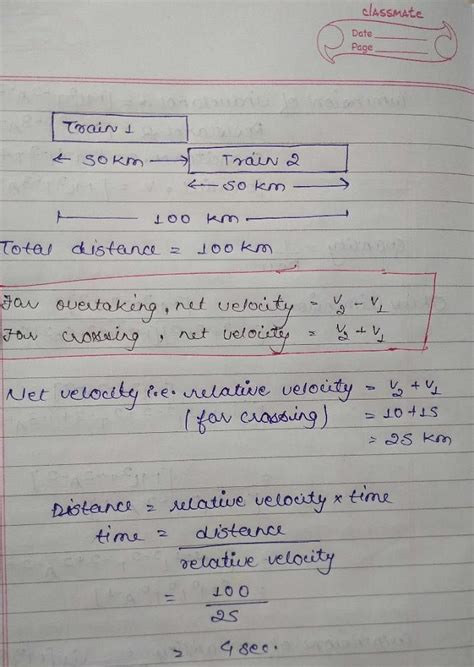 classmate
Date
Page
Train 1
← 50 KM →
Train 2
← 50 KM →
100 KM
Total distance = 100 KM
For overtaking, net velocity = V₂ - V₁
For crossing, net velocity = V₂ + V₁
Net velocity i.e. relative velocity = V₂ + V₁
(for crossing) = 10 + 15
= 25 KM
Distance = relative velocity × time
time = distance
relative velocity
= 100
25
= 4 sec.